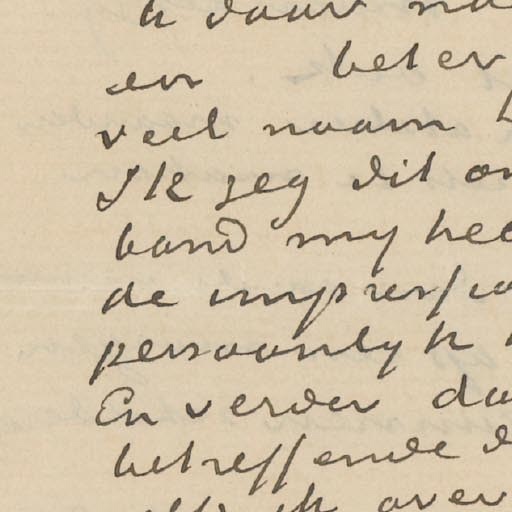 k daar
en beter
veel naam
Ik zeg dit
band my
de impressio
persoonlyk
En verder da
betreffende d
ik over